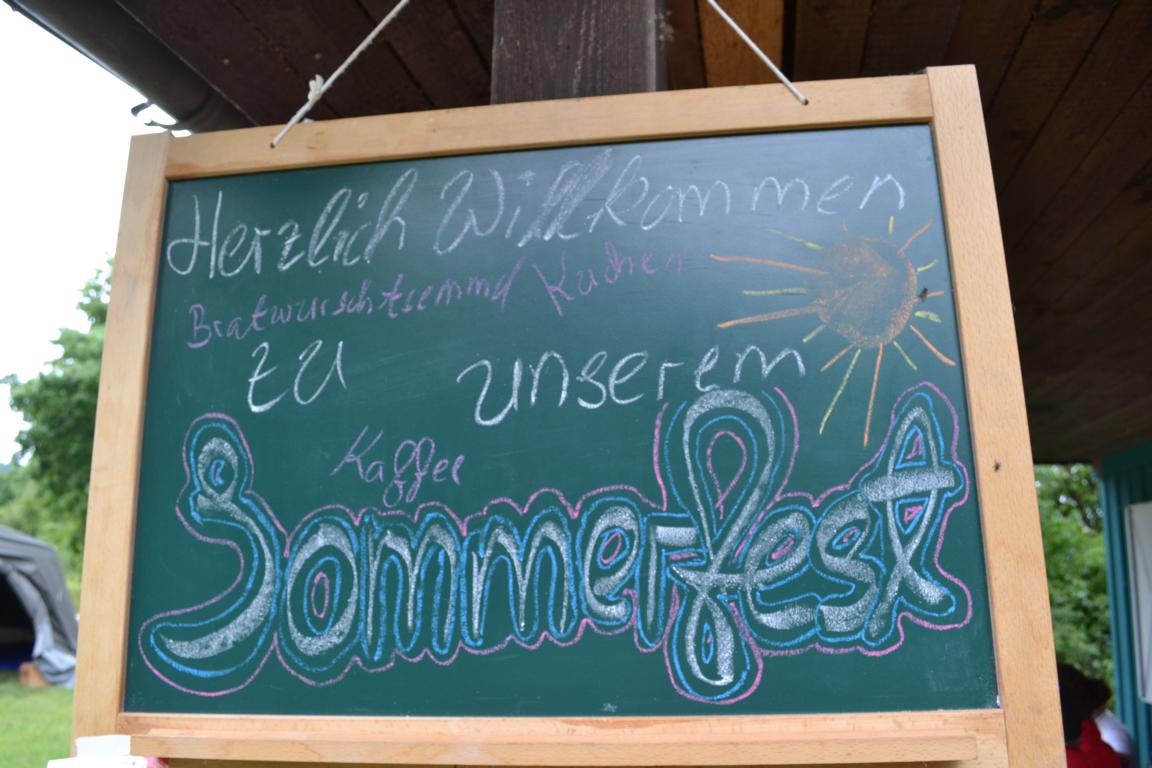 Herzlich Willkommen
Bratwurschtsemml Kuchen
zu unserem
Kaffee
Sommerfest